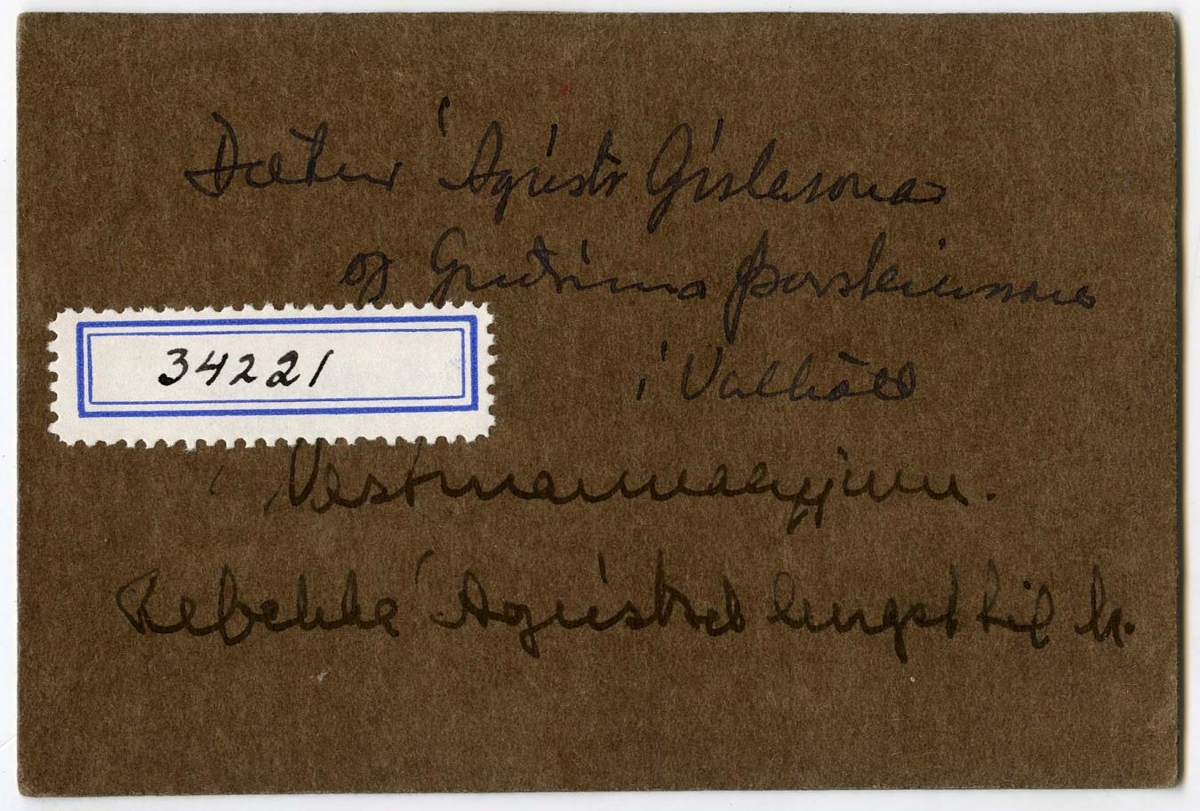 Dætur Ágústs Gíslasonar
og Guðrúnar Þorsteinsson
34221
í Valhöll
í Vestmannaeyjum.
Rebekka Ágústsd lengst til h.